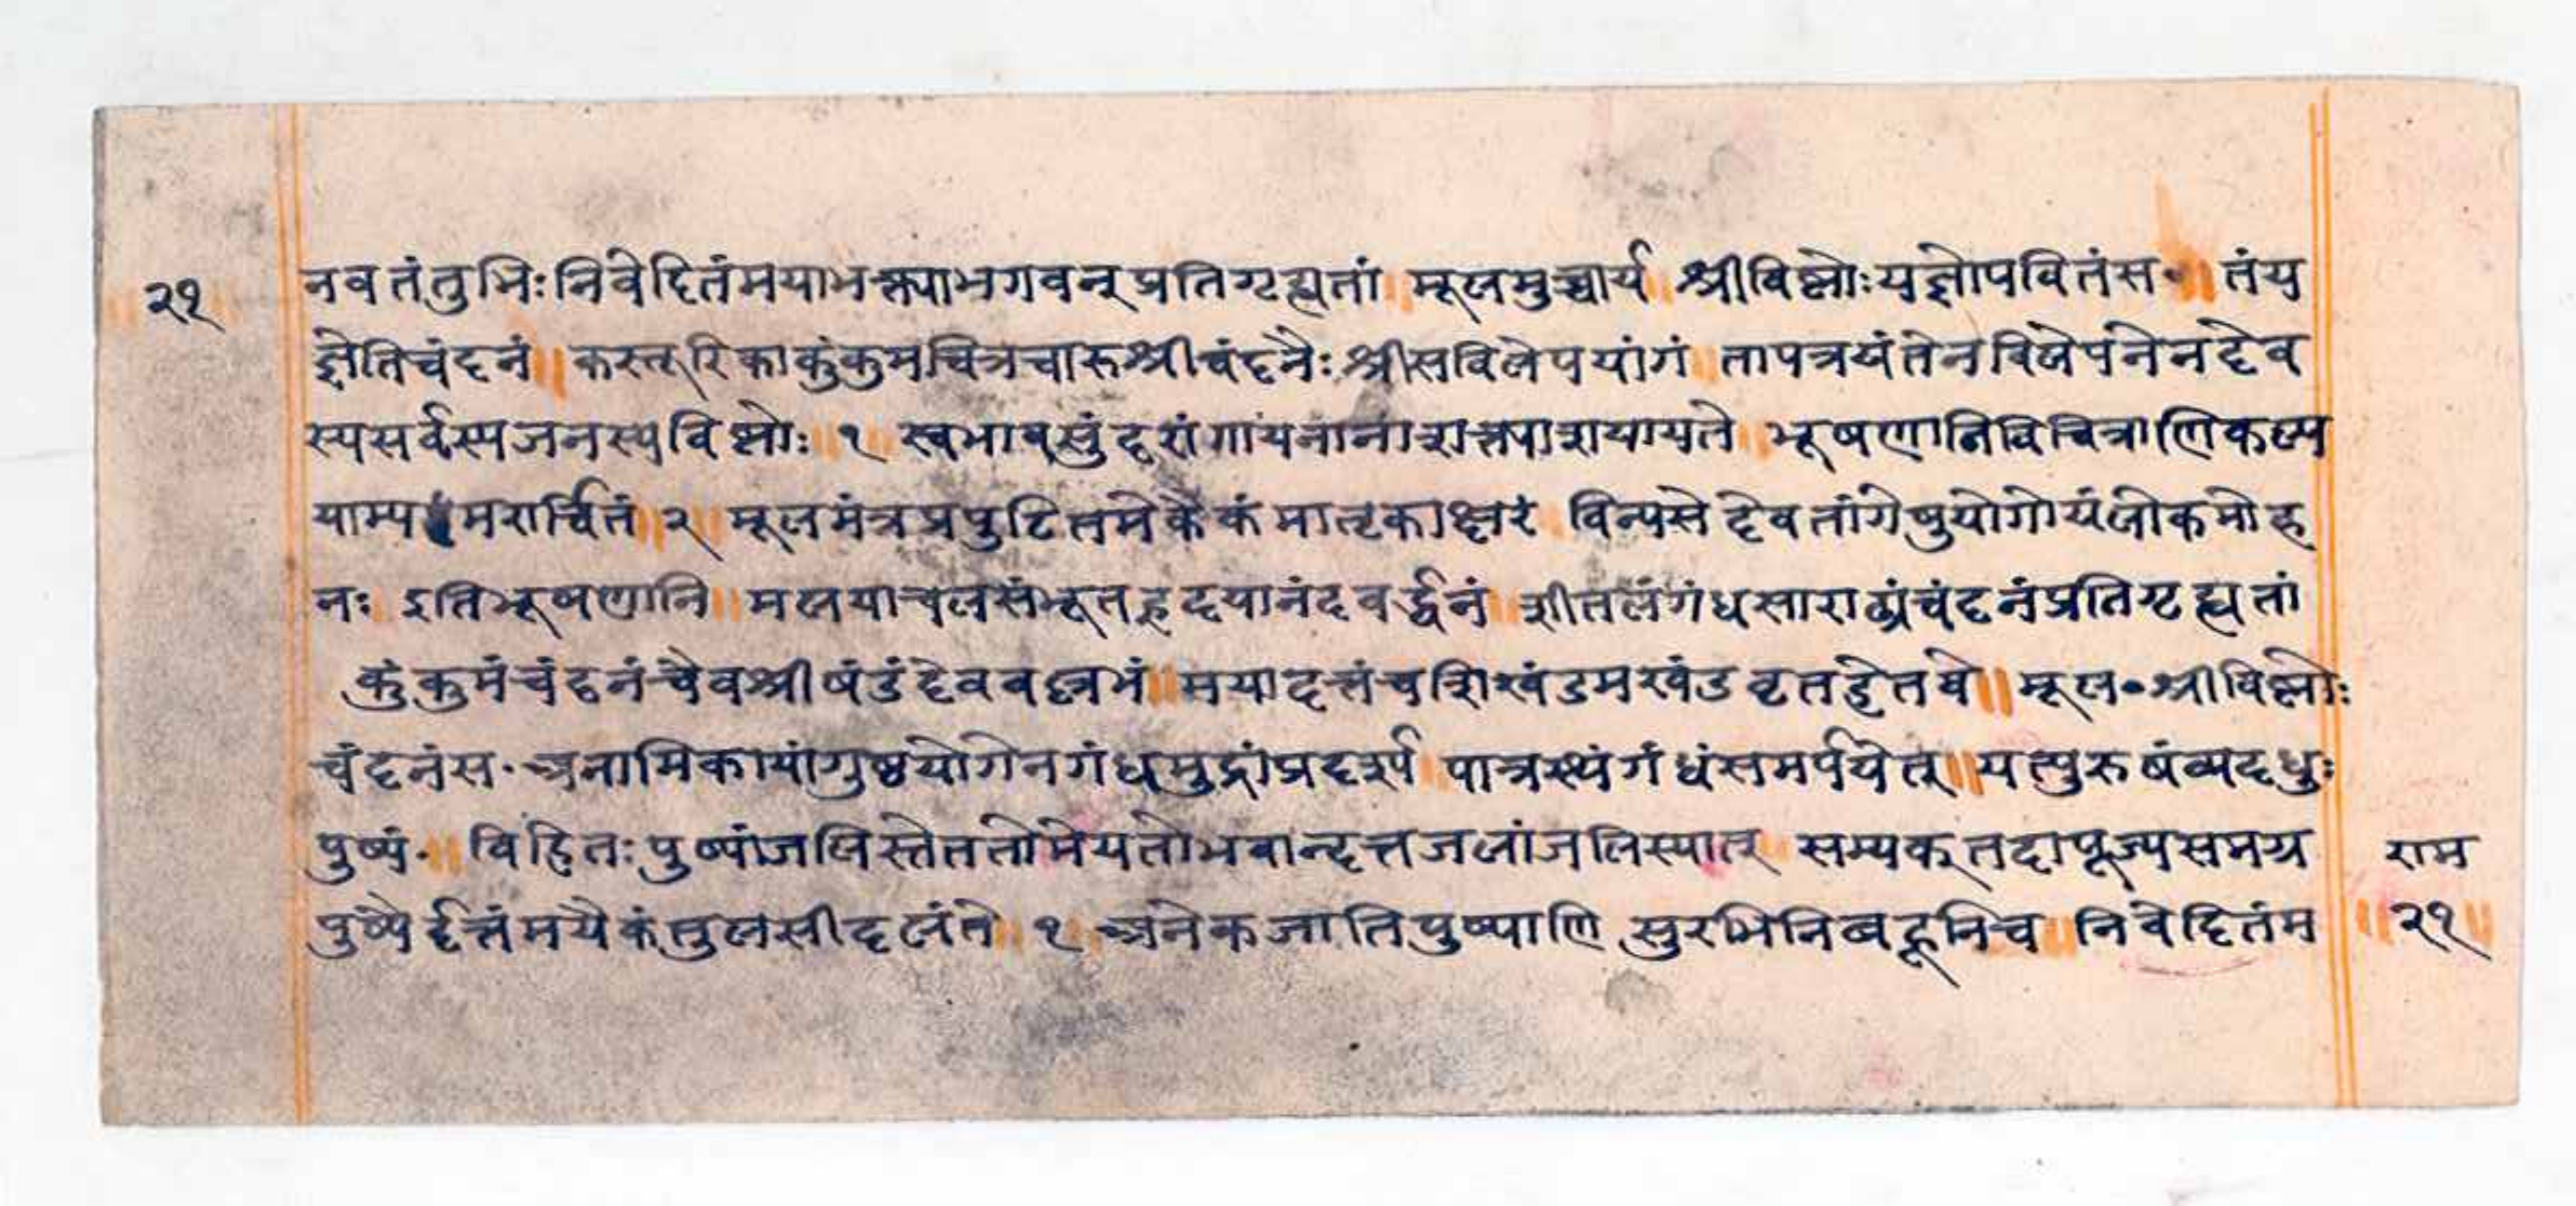 २१ नवतंतुभिः निवेदितंमयाभक्त्याभगवन् प्रतिगृह्यतां मूलमुच्चार्य श्रीविष्णोः यज्ञोपवितंस॰ तंय
ज्ञेतिचंदनं ॥ कस्तूरिकाकुंकुमचित्रचारुश्रीचंदनैः श्रीसविलेपयांगं तापत्रयंतेनविलेपनेनदेव
स्यसर्वस्यजनस्यविष्णोः १ स्वभावसुंदरांगांयनानाशक्त्याश्रयायते भूषणानिविचित्राणिकल्प
याम्यमरार्चितं २ मूलमंत्रप्रपुटितमेकैकंमातृकाक्षरं विन्यसेद्देवतांगेषुयोगोयंलोकमोह
नः इतिभूषणानि ॥ मलयाचलसंभूतहृदयानंदवर्द्धनं शीतलंगंधसाराढ्यंचंदनंप्रतिगृह्यतां
कुंकुमंचंदनंचैवश्रीषंडंदेववल्लभं ॥ मयादत्तंचशिखंडमखंडवृतहेतवे ॥ मूल॰ श्रीविष्णोः
चंदनंस॰ अनामिकायांगुष्ठयोगेनगंधमुद्रांप्रदर्श्य पात्रस्थंगंधंसमर्पयेत् ॥ यत्पुरुषंव्यदधुः
पुष्पं॰ ॥ विहितः पुष्पांजलिस्तेततोमेयतोभवान्दत्तजलांजलिस्यात् सम्यक्तदापूज्यसमग्र राम
पुष्पैर्द्दत्तंमयैकंतुलसीदलंते १ अनेकजातिपुष्पाणि सुरभिनिबहूनिच ॥ निवेदितंम ॥ २१ ॥